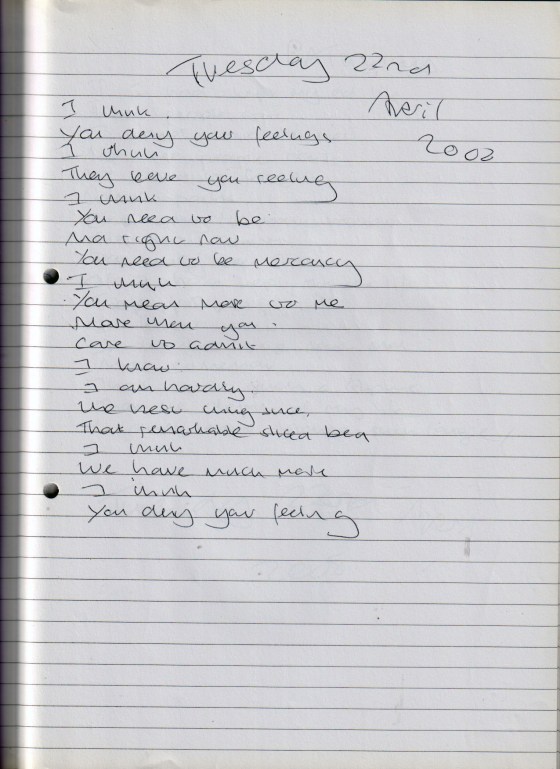 Tuesday 22nd
April
2003
I think.
You deny your feelings
I think
They leave you reeling
I think
You need to be
And right now
You need to be
I think
You mean more to me
More than you.
Care to admit
I know
I am hardly.
The best thing since,
That remarkable sliced
I think
We have much more
I think
You deny your feeling